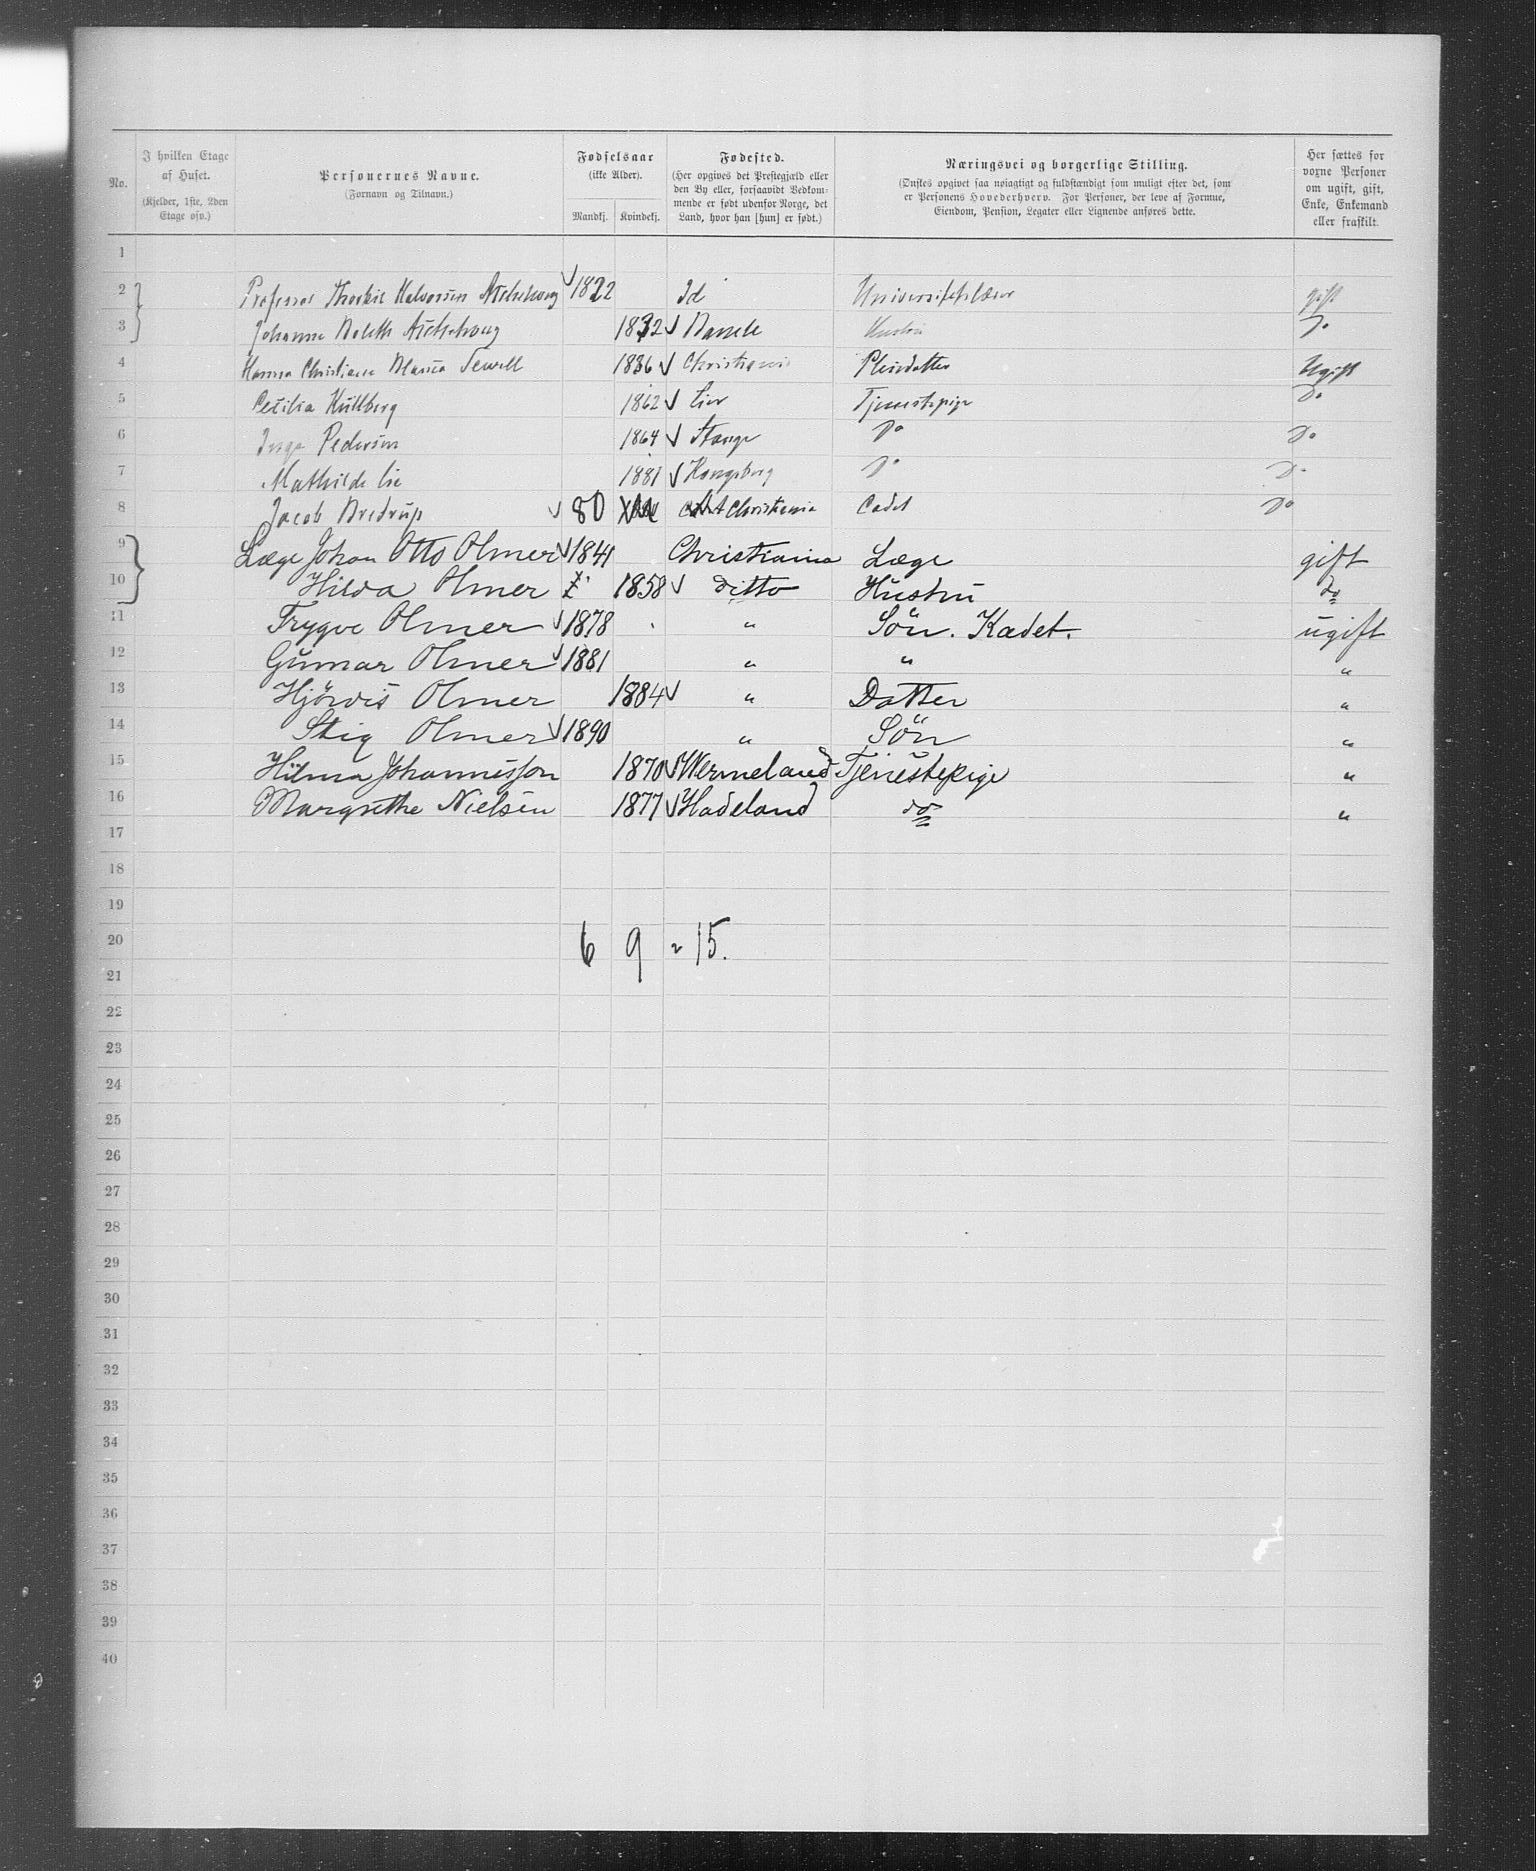 No.
I hvilken Etage af Huset.
(Kjelder, 1ste, 2den Etage osv.)
Personernes Navne.
(Fornavn og Tilnavn.)
Fødselsaar
(ikke Alder).
Mandkj. Kvindekj.
Fødested.
(Her opgives det Prestegjæld eller den By eller, forsaavidt Vedkommende er født udenfor Norge, det Land, hvor han [hun] er født.)
Næringsvei og borgerlige Stilling.
(Ønskes opgivet saa nøiagtigt og fuldstændigt som muligt efter det, som er Personens Hovederhverv. For Personer, der leve af Formue, Eiendom, Pension, Legater eller Lignende anføres dette.
Her sættes for voxne Personer om ugift, gift, Enke, Enkemand eller fraskilt.
1
2 Professor Thorkil Halvorsen Aschehoug 1822 Id Universitetslærer gift
3 Johanne Bolette Aschehoug 1832 Bamle Hustru Do
4 Hanna Christiane Marica Sewell 1836 Christiania Pleiedatter Ugift
5 Cecilia Hullberg 1862 Lier Tjenestepige Do
6 Inga Pedersen 1864 Stange Do Do
7 Mathilde Lie 1881 Kongsberg Do Do
8 Jacob Bredrup 80 Christiania Cadet Do
9 Læge Johan Otto Olmer 1841 Christiania Læge gift
10 Hilda Olmer 1858 ditto Hustru do
11 Trygve Olmer 1878 " Sön. Kadet. ugift
12 Gunnar Olmer 1881 " " "
13 Hjördis Olmer 1884 " Datter "
14 Stig Olmer 1890 " Sön "
15 Hilma Johannesson 1870 Wermeland Tjenestepige "
16 Margrethe Nielsen 1877 Hadeland do "
17
18
19
20 6 9 = 15.
21
22
23
24
25
26
27
28
29
30
31
32
33
34
35
36
37
38
39
40